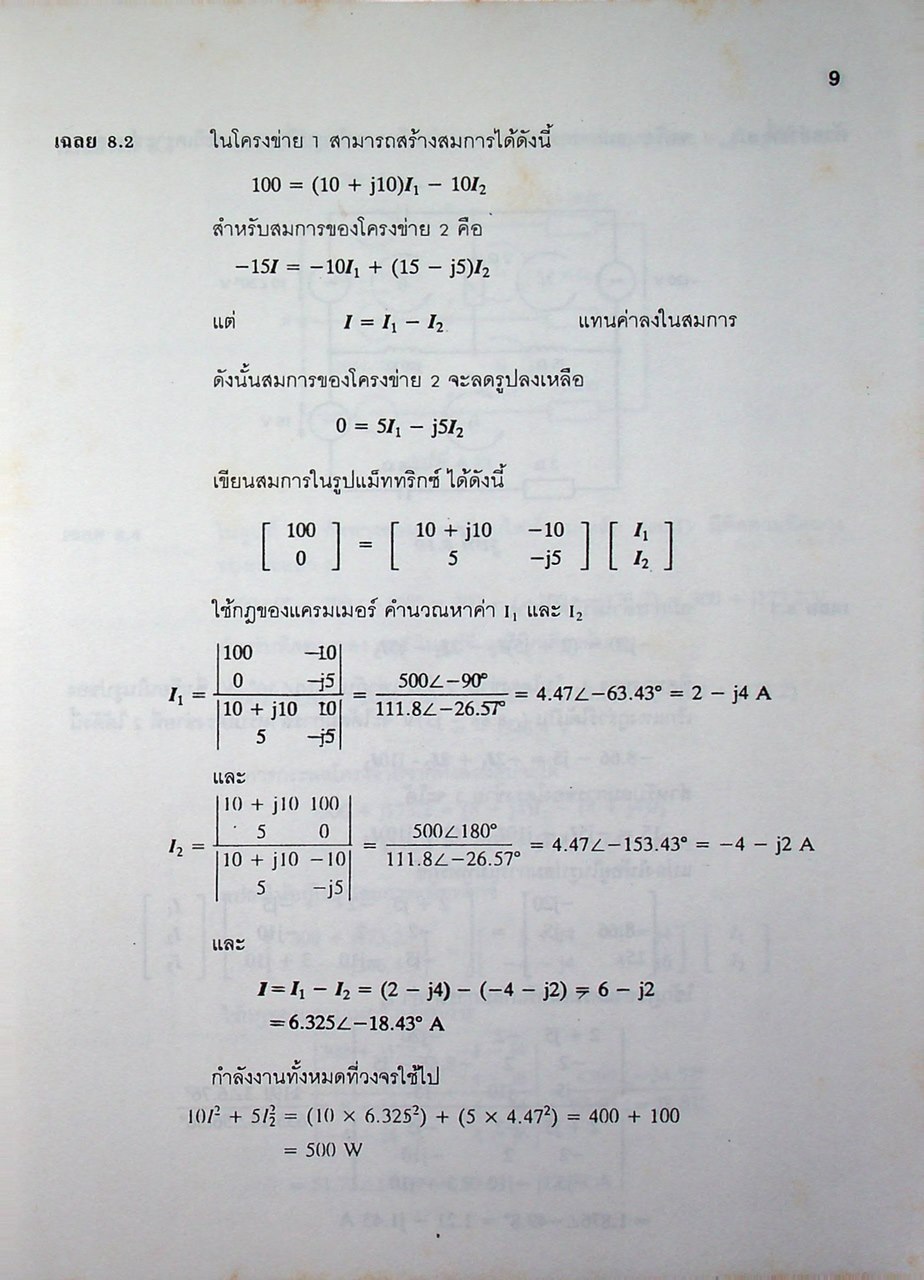 9
เฉลย 8.2 ในโครงข่าย 1 สามารถสร้างสมการได้ดังนี้
100 = (10 + j10)I₁ − 10I₂
สำหรับสมการของโครงข่าย 2 คือ
−15I = −10I₁ + (15 − j5)I₂
แต่ I = I₁ − I₂ แทนค่าลงในสมการ
ดังนั้นสมการของโครงข่าย 2 จะลดรูปลงเหลือ
0 = 5I₁ − j5I₂
เขียนสมการในรูปแม็ททริกซ์ ได้ดังนี้
[ 100 ] = [ 10 + j10 −10 ] [ I₁ ]
[ 0 ] [ 5 −j5 ] [ I₂ ]
ใช้กฎของแครมเมอร์ คำนวณหาค่า I₁ และ I₂
|100 −10|
|0 −j5|
I₁ = |10 + j10 10| = 500∠−90° / 111.8∠−26.57° = 4.47∠−63.43° = 2 − j4 A
|5 −j5|
และ
|10 + j10 100|
|5 0|
I₂ = |10 + j10 −10| = 500∠180° / 111.8∠−26.57° = 4.47∠−153.43° = −4 − j2 A
|5 −j5|
และ
I = I₁ − I₂ = (2 − j4) − (−4 − j2) = 6 − j2
= 6.325∠−18.43° A
กำลังงานทั้งหมดที่วงจรใช้ไป
10I² + 5I₂² = (10 × 6.325²) + (5 × 4.47²) = 400 + 100
= 500 W